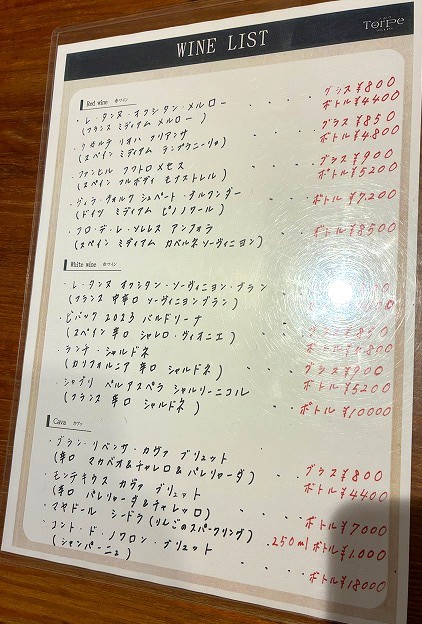 Torpe
WINE LIST
Red wine 赤ワイン
・レ・タンヌ・オクシタン・メルロー ・・・ グラス ¥800
(フランス ミディアム メルロー) ボトル ¥4400
・クガルテ リオハ クリアンサ ・・・ グラス ¥850
(スペイン ミディアム テンプラニーリョ) ボトル ¥4.800
・ファンヒル クワトロメセス ・・・ グラス ¥900
(スペイン フルボディ モナストレル) ボトル ¥5200
・ヴィラ・ウォルフ シュペート・ブルグンダー ・・ ボトル ¥7.200
(ドイツ ミディアム ピノノワール)
・フロ・デ・レ・ソレレス アンフォラ ・・・ ボトル ¥8500
(スペイン ミディアム カベルネソーヴィニヨン)
White wine 白ワイン
・レ・タンヌ オクシタン・ソーヴィニヨン・ブラン
(フランス 中辛口 ソーヴィニヨンブラン)
・ビバック 2023 バルドリーナ ・・・ グラス ¥850
(スペイン 辛口 シャレロ・ヴィオニエ) ボトル ¥4800
・ランチ・シャルドネ ・・・ グラス ¥900
(カリフォルニア 辛口 シャルドネ) ボトル ¥5200
・シャブリ ペルアスペラ シャルリーニコル ・・・ ボトル ¥10000
(フランス 辛口 シャルドネ)
Cava カヴァ
・グラン・リベンサ・カヴァ ブリュット ・・・ グラス ¥800
(辛口 マカベオ&チャレロ&パレリャーダ) ボトル ¥4400
・モンテキウス カヴァ ブリュット ・・・ ボトル ¥7000
(辛口 パレリャーダ&チャレッロ)
・マヤドール シードラ(りんごのスパークリング) .250ml ボトル ¥1.000
・コント・ド・ノワロン・ブリュット ・・・ ボトル ¥18000
(シャンパーニュ)